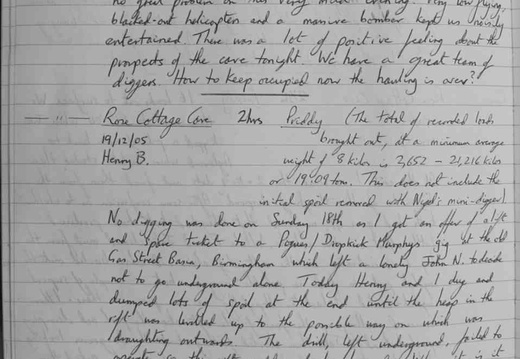 no great problem on this very mild evening. Very low flying,
blacked-out helicopters and a massive bomber kept us noisily
entertained. There was a lot of positive feeling about the
prospects of the cave tonight. We have a great team of
diggers. How to keep occupied now the hauling is over?
— " — Rose Cottage Cave 2hrs Priddy (The total of recorded loads
19/12/05 brought out, at a minimum average
Henry B. weight of 8 kilos is 2,652 - 21,216 kilos
or 19.09 tons. This does not include the
initial spoil removed with Nigel's mini-digger)
No digging was done on Sunday 18th as I got an offer of a lift
and spare ticket to a Pogues/Dropkick Murphys gig at the old
Gas Street Basin, Birmingham which left a lonely John N. to decide
not to go underground alone. Today Henry and I dug and
dumped lots of spoil at the end until the heap in the
rift was levelled up to the possible way on which was
draughting outwards. The drill, left underground, failed to